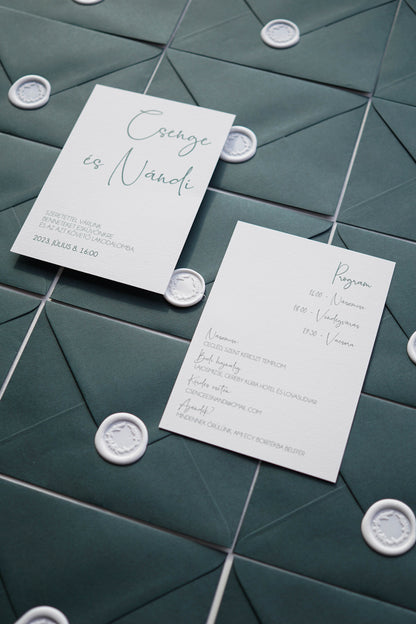 Csenge
és Nándi
SZERETETTEL VÁRUNK
BENNETEKET ESKÜVŐNKRE
ÉS AZ AZT KÖVETŐ LAKODALOMBA.
2023. JÚLIUS 8. 16:00
Program
16:00 - Násznmise
18:00 - Vendégvárás
19:30 - Vacsora
CEGLÉD, SZENT KERESZT TEMPLOM
Buli helyszíne
LAJOSMIZSE, GERÉBY KÚRIA HOTEL ÉS LOVASUDVAR
Kérdés esetén
CSENGEESNANDI@GMAIL.COM
Ajándék?
MINDENNEK ÖRÜLÜNK, AMI EGY BORÍTÉKBA BELEFÉR